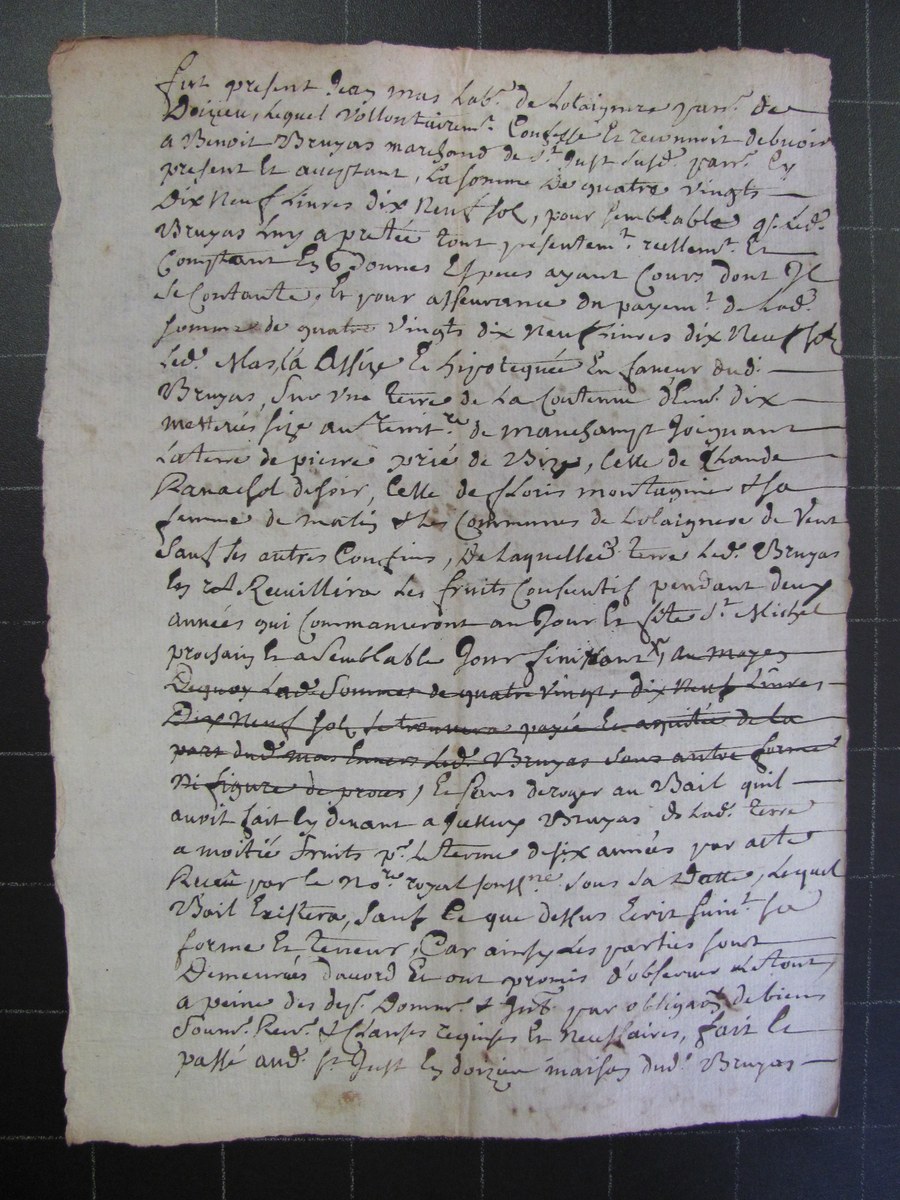 fut present Jean mas Lab.r de Lolaignere parr. de
Doizieu, Lequel vollontairem.t Confesse Et reconnoit debvoir
a Benoit Bruyas marchand de S.t Just susd. parr. Ey
present Et acceptant, La somme De quatre vingts
Dix Neuf Livres dix Neuf sol, pour semblable q. Led.
Bruyas Luy a pretée tout presentem.t reellem.t Et
Comptant En bonnes Especes ayant Cours dont Il
se Contante, Et pour asseurance du payem.t de Lad.
somme de quatre vingts dix Neuf Livres dix Neuf sol
Led. Mas, a Assize Et hipotequée En faveur dud.
Bruyas, sur une terre de La Contenue d'Env. dix
metterés size au territ.re de manchampt Joignant
La terre de pierre prié de Bize, Celle de Claude
Ranachol de soir, Celle de floris montagnie & sa
femme de matin & Les Communes de Lolaignere de vent
Sauf ses autres Confins, De Laquelle terre Led. Bruyas
En Recuillira Les fruits Consecutif pendant deux
années qui Commanceront au Jour Et fête S.t Michel
prochain Et a semblable Jour finissant, au moyen
Dequoy Lad. Somme de quatre vingts dix Neuf Livres
Dix Neuf sol se trouvera payée Et aquitée de la
part dud. mas Envers Led. Bruyas sans autre forme
Ni figure de proces, Et sans deroger au Bail quil
avoit fait Cy devant a Bruyas de Lad. terre
a moitié fruits p.r Le terme de six années par acte
Receu par le No.re royal souss.né sous sa Datte, Lequel
Bail Existera, sauf Ce que dessus Ecrit suiv.t sa
forme Et teneur, Car ainsy Les parties sont
Demeurées d'acord Et ont promis d'observer Le tout
a peine des dep. Domm. & Int. par obligaon de biens
Soum. Ren. & Clauses requises Et Necessaires, fait Et
passé aud. S.t Just En doizieu maison dud. Bruyas